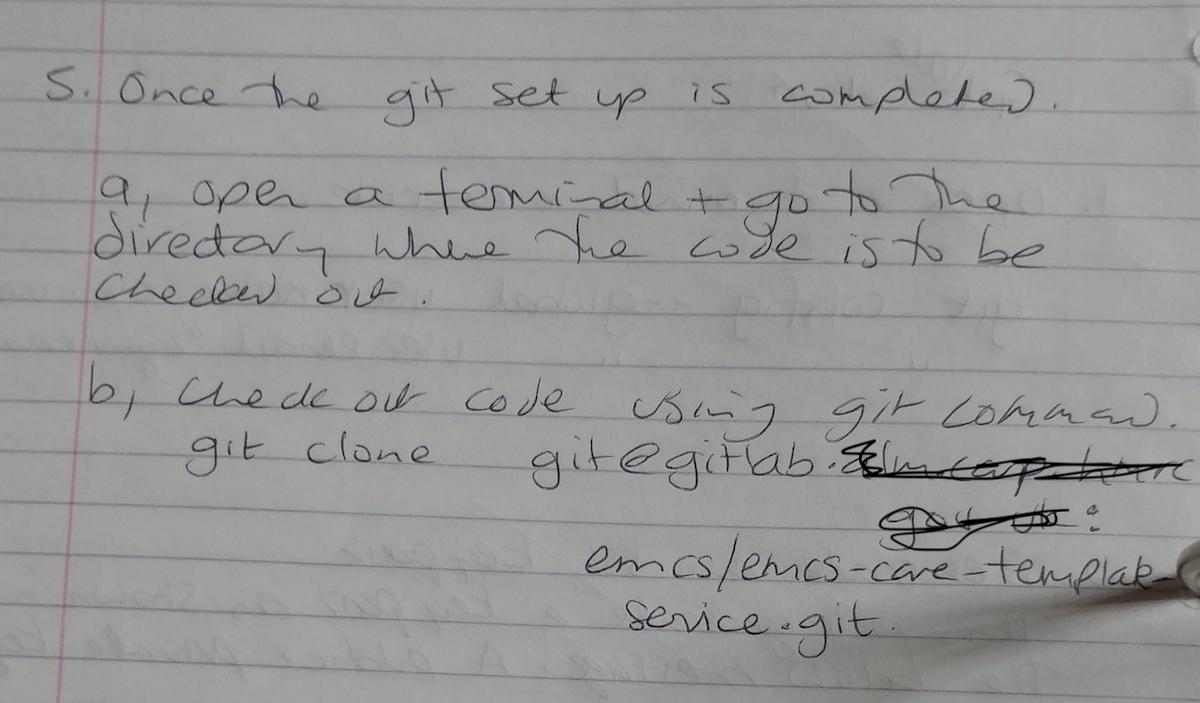 5. Once the git set up is completed.
a, open a terminal + go to the
directory where the code is to be
checked out.
b, check out code using git command.
git clone git@gitlab.
:
emcs/emcs-core-template-
service.git.